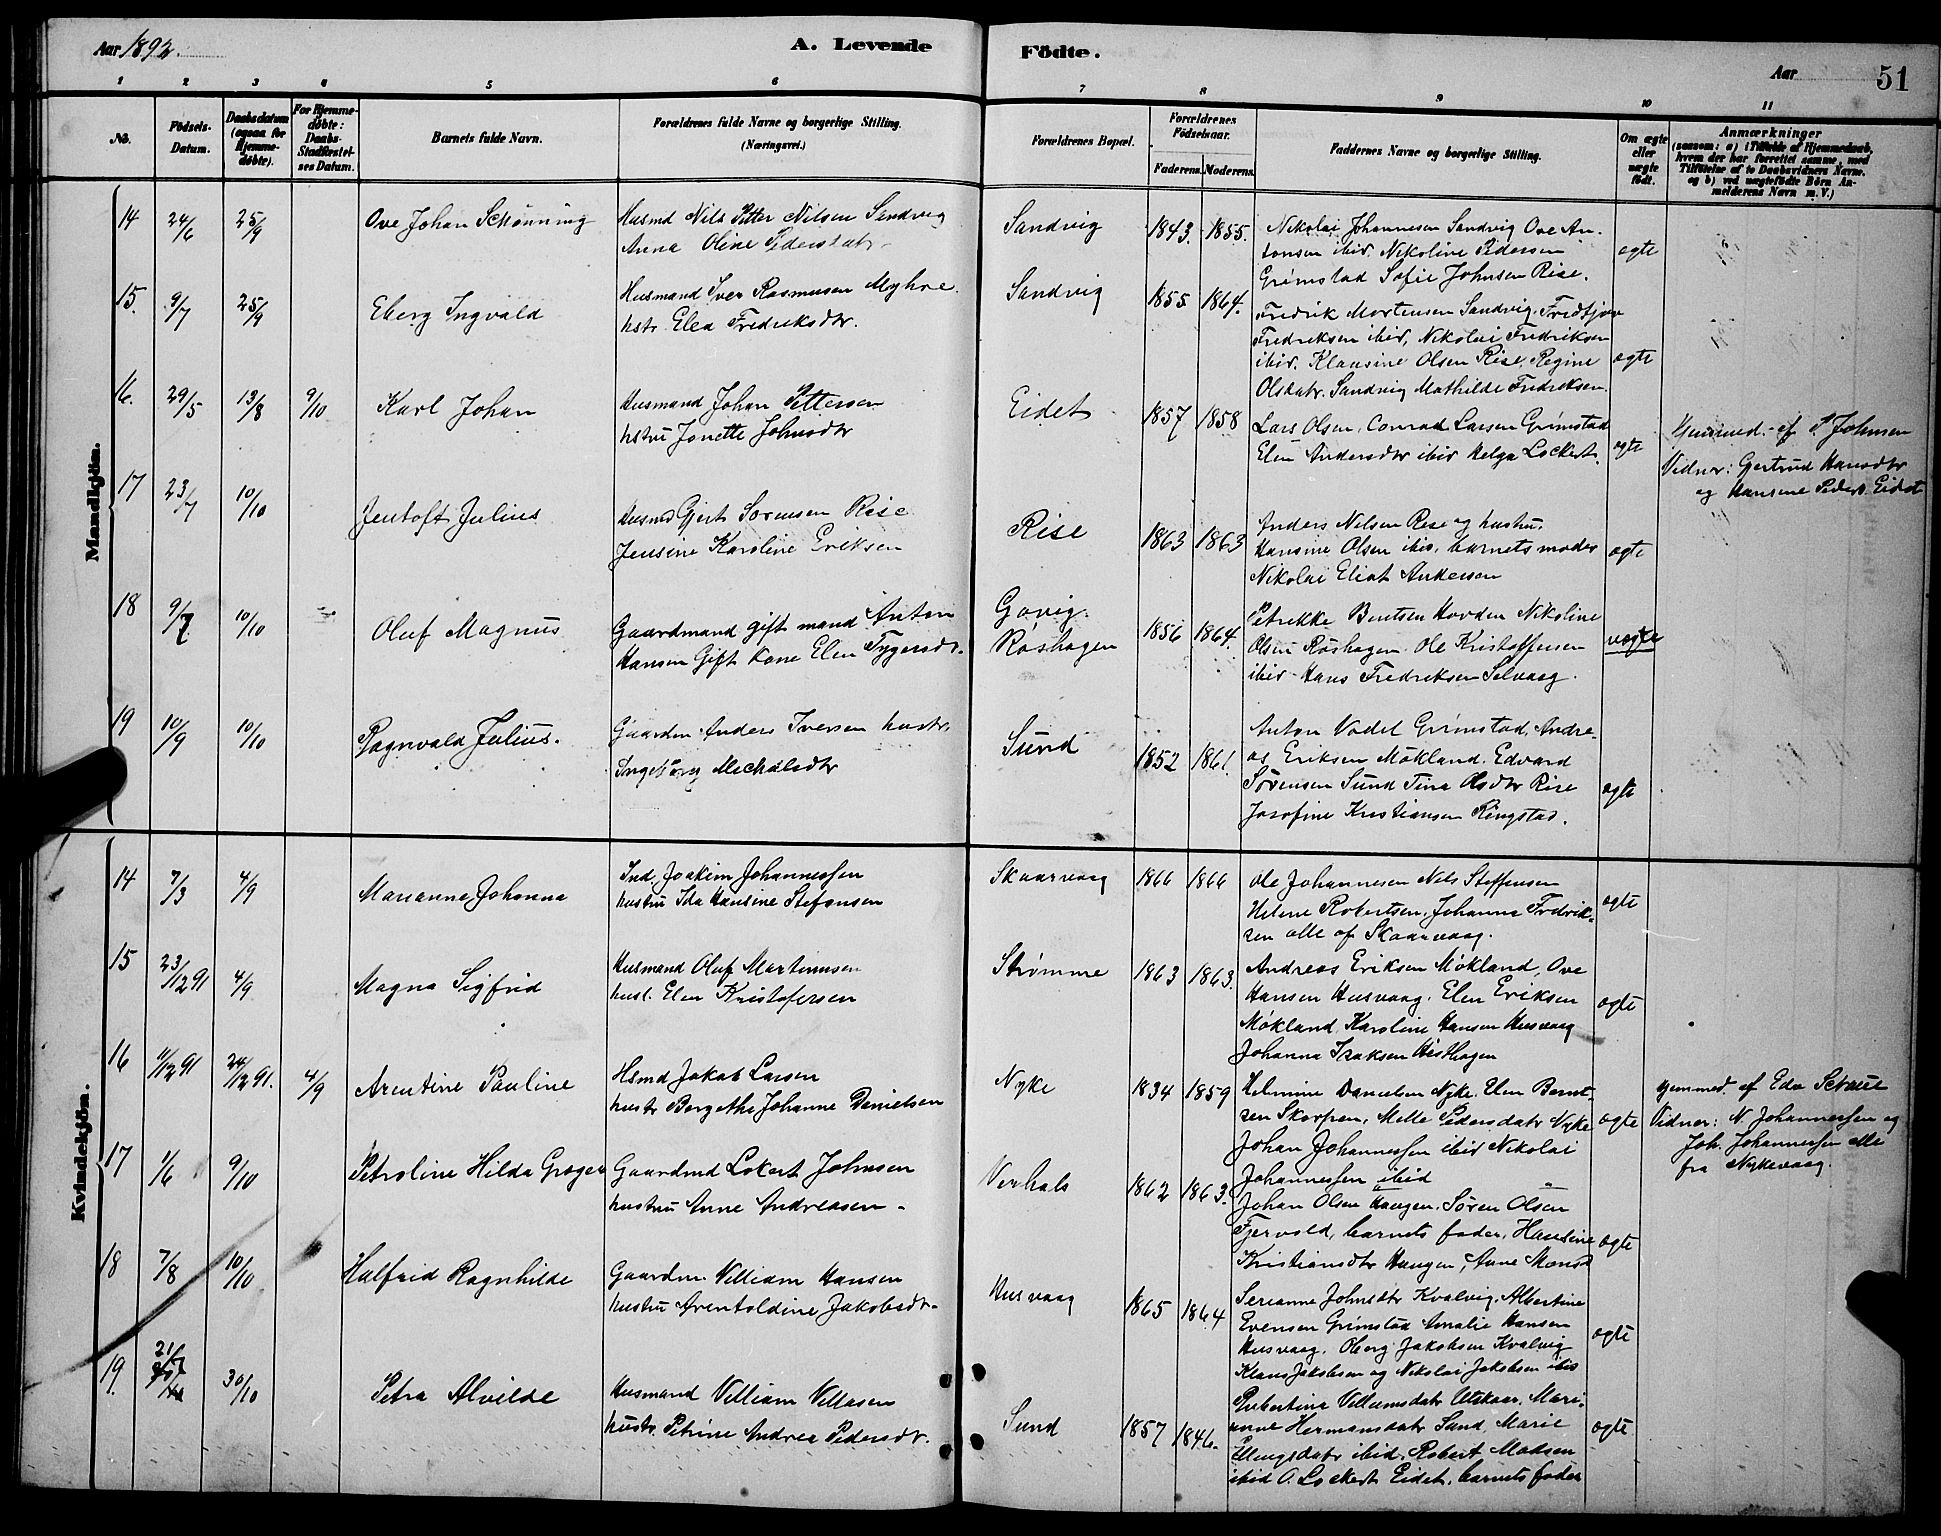 Aar 1892.
A. Levende Födte.
Aar
51
1 2 3 4 5 6 7 8 9 10 11
No.
Födsels-Datum.
Daabsdatum (ogsaa for Hjemme-døbte).
For Hjemme-døbte: Daabs-Stadfæstel-ses Datum.
Barnets fulde Navn.
Forældrenes fulde Navne og borgerlige Stilling.
(Næringsvei.)
Forældrenes Bopæl.
Forældrenes Fødselsaar.
Faderens. Moderens.
Faddernes Navne og borgerlige Stilling.
Om ægte eller uægte født.
Anmærkninger
(saasom: a) i Tilfælde af Hjemmedaab, hvem der har forrettet samme, med Tilføielse af to Daabsvidners Navne, og b) ved uægtefødte Børn An-melderens Navn m. V.)
Mandkjön.
14 24/6 25/9 Ove Johan Schønning
Husmd Nils Petter Nilsen Sandvig
Anna Oline Pedersdatr
Sandvig 1843. 1855.
Nikolai Johannesen Sandvig Ove An-
tonsen ibid. Nikoline Pedersen
Grimstad Sofie Johnsen Rise.
ægte
15. 9/7 25/9 Eberg Ingvald
Husmand Iver Rasmusen Myhre.
hstr. Elea Fredriksdtr.
Sandvig 1855 1864.
Fredrik Mortensen Sandvig. Fridtjov
Fredriksen ibid, Nikolai Fredriksen
ibid. Klausine Olsen Rise, Regine
Olsdatr. Sandvig Mathilde Fredriksen
ægte
16. 29/5 13/8 9/10 Karl Johan
Husmand Johan Pettersen
hstru Jonette Johnsdtr
Eidet 1857 1858
Lars Olsen, Conrad Larsen Grimstad
Elen Andersdtr ibid Helga Lockert.
ægte
Hjemmed. af P. Johnsen
Vidner: Gertrud Hansdtr
og Hansine Peders. Eidet
17 23/7 10/10 Jentoft Julius
Husmd Gjert Sorensen Rise
Jensine Karoline Eriksen
Rise 1863 1863
Anders Nilsen Rise og hustru.
Hansine Olsen ibid, barnets moder
Nikolai Eliot Andersen
ægte
18 9/7 10/10 Oluf Magnus
Gaardmand gift mand Anton
Hansen Gift Kone Elen Tygersdtr.
Gavig.
Røshagen 1856 1864.
Petrikke Bentsen Hovden Nikoline
Olsen Røshagen. Ole Kristoffersen
ibid. Hans Fredriksen Selvaag.
uægte
19 10/9 10/10 Ragnvald Julius.
Gaardm. Anders Iversen hustr.
Ingeborg Michalsdtr
Sund 1852 1861.
Anton Vadet Grimstad, Andre-
as Eriksen Møkland. Edvard
Sørensen Sund Tina Olsdtr Rise
Josefine Kristiansen Ringstad.
ægte
Kvindekjön.
14 7/3 4/9 Marianne Johanna
Ind. Joakim Johannessen
hustru Ida Hansine Stefansen
Skaarvaag 1866 1866
Ole Johannesen Nils Steffensen
Helene Robertsen, Johanna Fredrik-
sen alle af Skaarvaag.
ægte
15 23/12 91 4/9 Magna Sigfrid
Husmand Oluf Martinusen
hust. Elen Kristofersen
Strømme 1863 1863.
Andreas Eriksen Møkland, Ove
Hansen Husvaag. Elen Eriksen
Møkland Karoline Hansen Husvaag
Johanna Isaksen Hesthagen
ægte
16 11/12 91 24/12 91. 4/9 Arentine Pauline
Hsmd Jakob Larsen
hustr Bergethe Johanne Danielsen
Nyke 1834 1859
Helmine Danielsen Nyke. Elen Bernt-
sen Skorpen. Mette Pedersdatr Nyke
Johan Johannessen ibid Nikolai
Johannessen ibid
ægte
Hjemmed. af Edv Schøue
Vidner: N. Johannessen og
Joh. Johannessen alle
fra Nykevaag.
17 1/6 9/10 Petroline Hilda Grøger
Gaardmd Lokert Johnsen
hustru Anne Andreasen
Verhals 1862 1863.
Johan Olsen Haugen. Søren Olsen
Fjervold, barnets fader, Hansine
Kristiansdtr Haugen, Anne Monsd
ægte
18 7/8 10/10 Halfrid Ragnhilde
Gaardm. Villiam Hansen
hustru Arentoldine Jakobsdtr.
Husvaag 1865 1864
Serianne Johnsdtr Kvalvig. Albertine
Evensen Grimstad Amalie Hansen
Husvaag. Oberg Jakobsen Kvalvig
Klaus Jakobsen og Nikolai Jakobsen ibid
ægte
19. 21/7 30/10 Petra Alvilde
Husmand Villiam Villasen
hustr. Petrine Andrea Pedersdtr.
Sund 1857 1846.
Enbertine Villumsdatr Utskaar. Mari-
anne Hermansdatr Sund, Marie
Ellingsdatr ibid. Robert Madsen
ibid O. Lockert Eidet, barnets fader
ægte